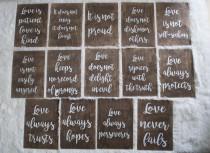 Love is
patient
love is
kind
it does not
envy
it does not
boast
It is not
proud
Love
does not
dishonor
others
Love
is not
self-seeking
Love
is not
easily
angered
Love
keeps
no record
of wrongs
Love
does not
delight
in evil
Love
rejoices
with
the truth
Love
always
protects
Love
always
trusts
Love
always
hopes
Love
always
perseveres
Love
never
fails